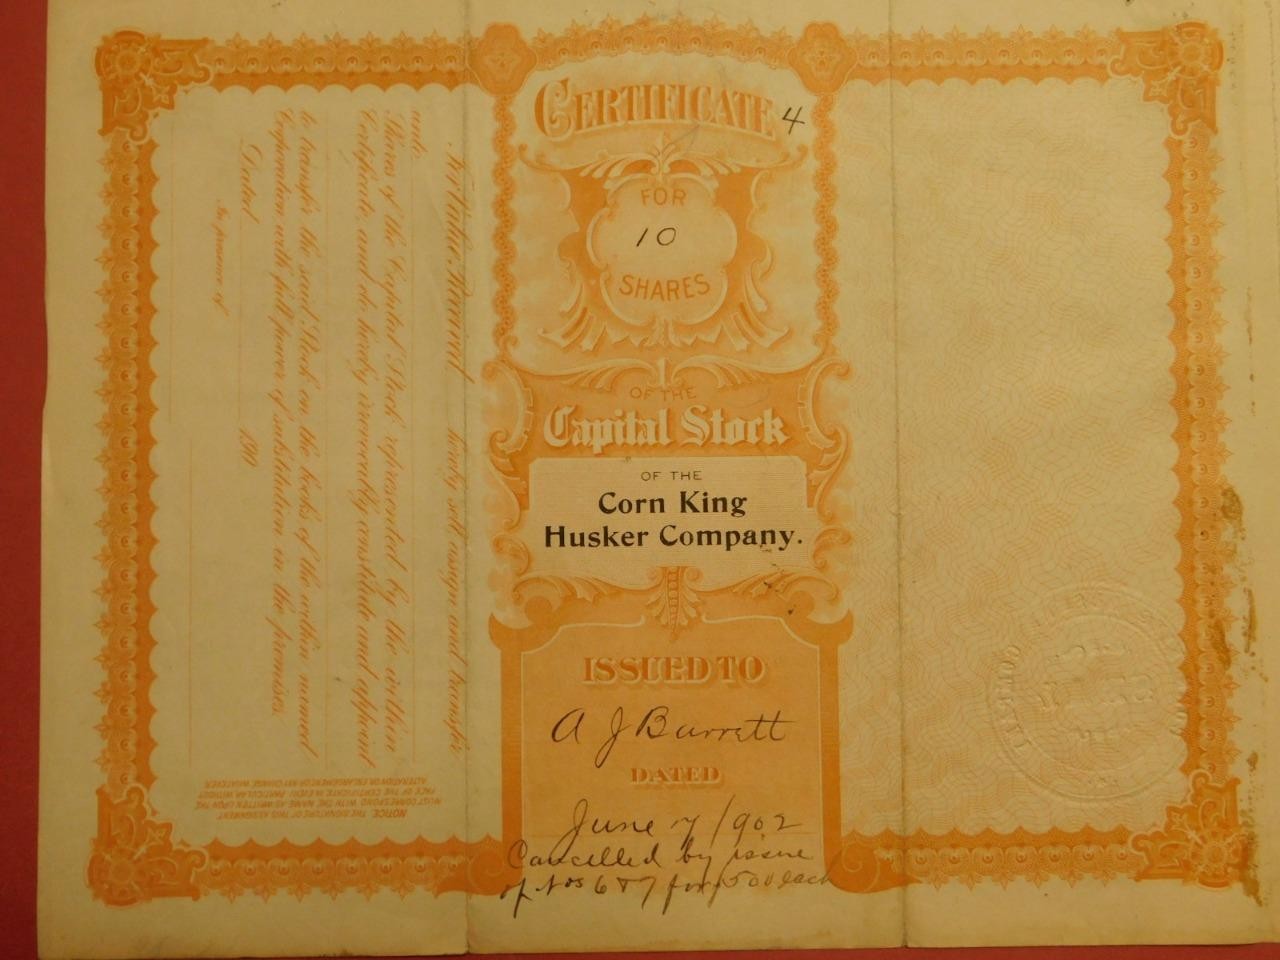 CERTIFICATE 4
FOR
10
SHARES
OF THE
Capital Stock
OF THE
Corn King
Husker Company.
ISSUED TO
A J Barrett
DATED
June 7 1902
Cancelled by issue
of Nos 6 & 7 for 500 each
For Value Received hereby sell assign and transfer
unto
Shares of the Capital Stock represented by the within
Certificate, and do hereby irrevocably constitute and appoint
to transfer the said Stock on the books of the within named
Corporation with full power of substitution in the premises.
Dated 190
In presence of
NOTICE. THE SIGNATURE OF THIS ASSIGNMENT
MUST CORRESPOND WITH THE NAME AS WRITTEN UPON THE
FACE OF THE CERTIFICATE IN EVERY PARTICULAR WITHOUT
ALTERATION OR ENLARGEMENT OR ANY CHANGE WHATEVER.